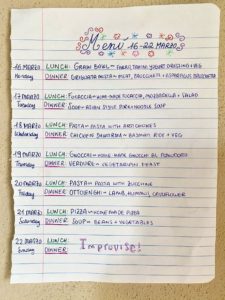 Menu 16-22 MARZO
16 MARZO LUNCH: GRAIN BOWL - TAHINI YOGURT DRESSING + VEG
Monday DINNER: ORECCHIETTE PASTA - MEAT, BROCCHETTI + ASPARAGUS BRUSCHETTA
17 MARZO LUNCH: FOCACCIA - HOME-MADE FOCACCIA, MOZZARELLA + SALAD
Tuesday DINNER: SOUP - ASIAN STYLE PORK + NOODLE SOUP
18 MARZO LUNCH: PASTA - PASTA WITH ARTICHOKES
Wednesday DINNER: CHICKEN SHAWARMA - BASMATI RICE + VEG
19 MARZO LUNCH: GNOCCHI - HOME-MADE GNOCCHI AL POMODORO
Thursday DINNER: VERDURE - VEGETARIAN FEAST
20 MARZO LUNCH: PASTA - PASTA WITH ZUCCHINE
Friday DINNER: OTTOLENGHI - LAMB, HUMMUS, CAULIFLOWER
21 MARZO LUNCH: PIZZA - HOMEMADE PIZZA
Saturday DINNER: SOUP - BEANS + VEGETABLES
22 MARZO LUNCH:
Sunday DINNER:
Improvise!